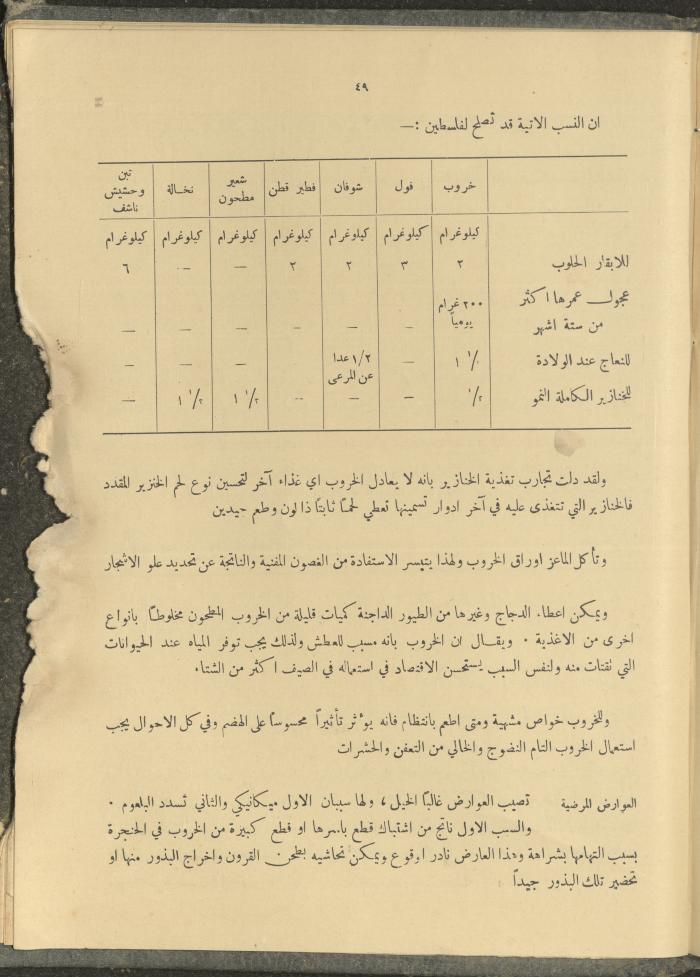 ٤٩
ان النسب الاتية قد تصلح لفلسطين :—
خروب | فول | شوفان | فطير قطن | شعير مطحون | نخالة | تبن وحشيش ناشف
كيلوغرام | كيلوغرام | كيلوغرام | كيلوغرام | كيلوغرام | كيلوغرام | كيلوغرام
للابقار الحلوب | ٢ | ٣ | ٢ | ٢ | — | — | ٦
عجول عمرها اكثر من ستة اشهر | ٢٠٠ غرام يومياً | — | — | — | — | — | —
للنعاج عند الولادة | | — | ١/٢ عدا عن المرعى | | — | — | —
للخنازير الكاملة النمو | ١/٢ | — | — | — | ١ ١/٢ | ١ ١/٢ | —
ولقد دلت تجارب تغذية الخنازير بانه لا يعادل الخروب اي غذاء آخر لتحسين نوع لحم الخنزير المقدد
فالخنازير التي تتغذى عليه في آخر ادوار تسمينها تعطي لحماً ثابتاً ذا لون وطعم جيدين
وتأكل الماعز اوراق الخروب ولهذا يتيسر الاستفادة من الغصون المفنية والناتجة عن تحديد علو الاشجار
ويمكن اعطاء الدجاج وغيرها من الطيور الداجنة كميات قليلة من الخروب المطحون مخلوطاً بانواع
اخرى من الاغذية . ويقال ان الخروب بانه مسبب للعطش ولذلك يجب توفر المياه عند الحيوانات
التي تقتات منه ولنفس السبب يستحسن الاقتصاد في استعماله في الصيف اكثر من الشتاء.
وللخروب خواص مشهية ومتى اطعم بانتظام فانه يؤثر تأثيراً محسوساً على الهضم وفي كل الاحوال يجب
استعمال الخروب التام النضوج والخالي من التعفن والحشرات
العوارض المرضية تصيب العوارض غالباً الخيل ، ولها سببان الاول ميكانيكي والثاني تسدد البلعوم .
والسبب الاول ناتج من اشتباك قطع باسرها او قطع كبيرة من الخروب في الحنجرة
بسبب التهامها بشراهة وهذا العارض نادر الوقوع ويمكن تحاشيه بطحن القرون واخراج البذور منها او
تحضير تلك البذور جيداً